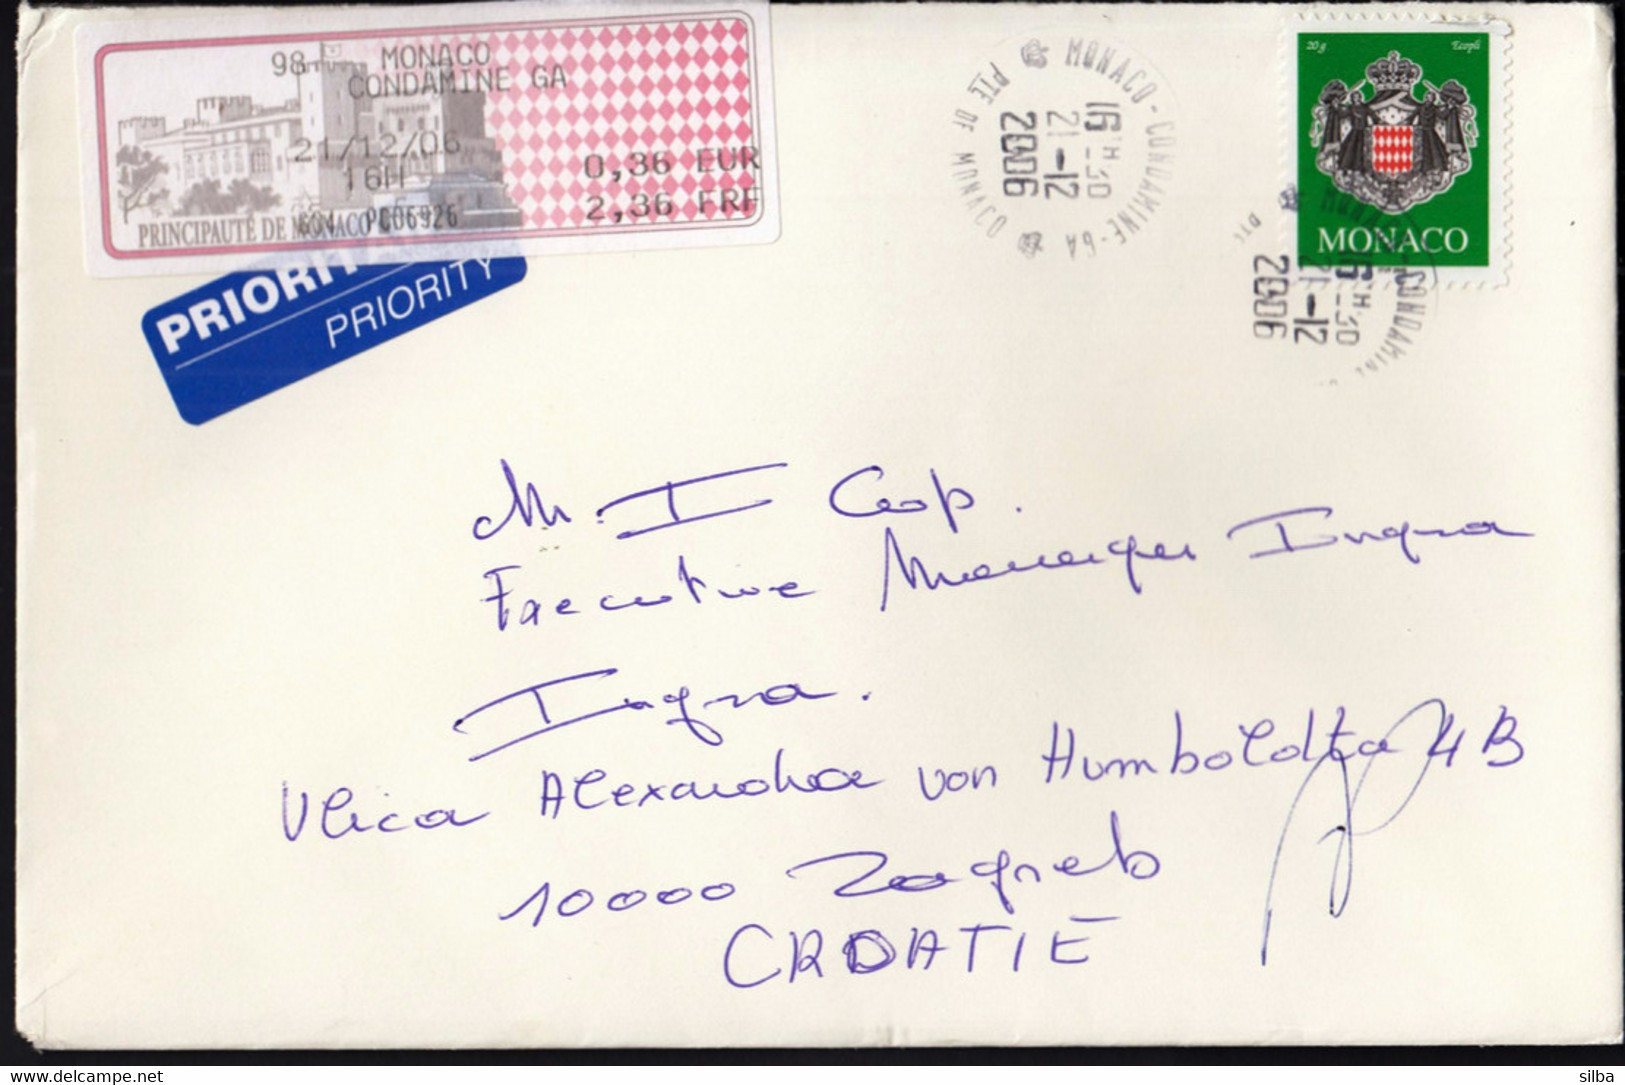 98 MONACO
CONDAMINE GA
21/12/06
16H
0,36 EUR
2,36 FRF
PRINCIPAUTÉ DE MONACO
PC06926
PRIORITAIRE
PRIORITY
MONACO-CONDAMINE-GA
PTE DE MONACO
16H30
21-12
2006
20 g Ecopli
MONACO
MONACO-CONDAMINE
PTE
16H30
21-12
2006
Mr. I Cop.
Executive Manager Ingra
Ingra.
Ulica Alexandra von Humboldta 4B
10000 Zagreb
CROATIE
delcampe.net
silba